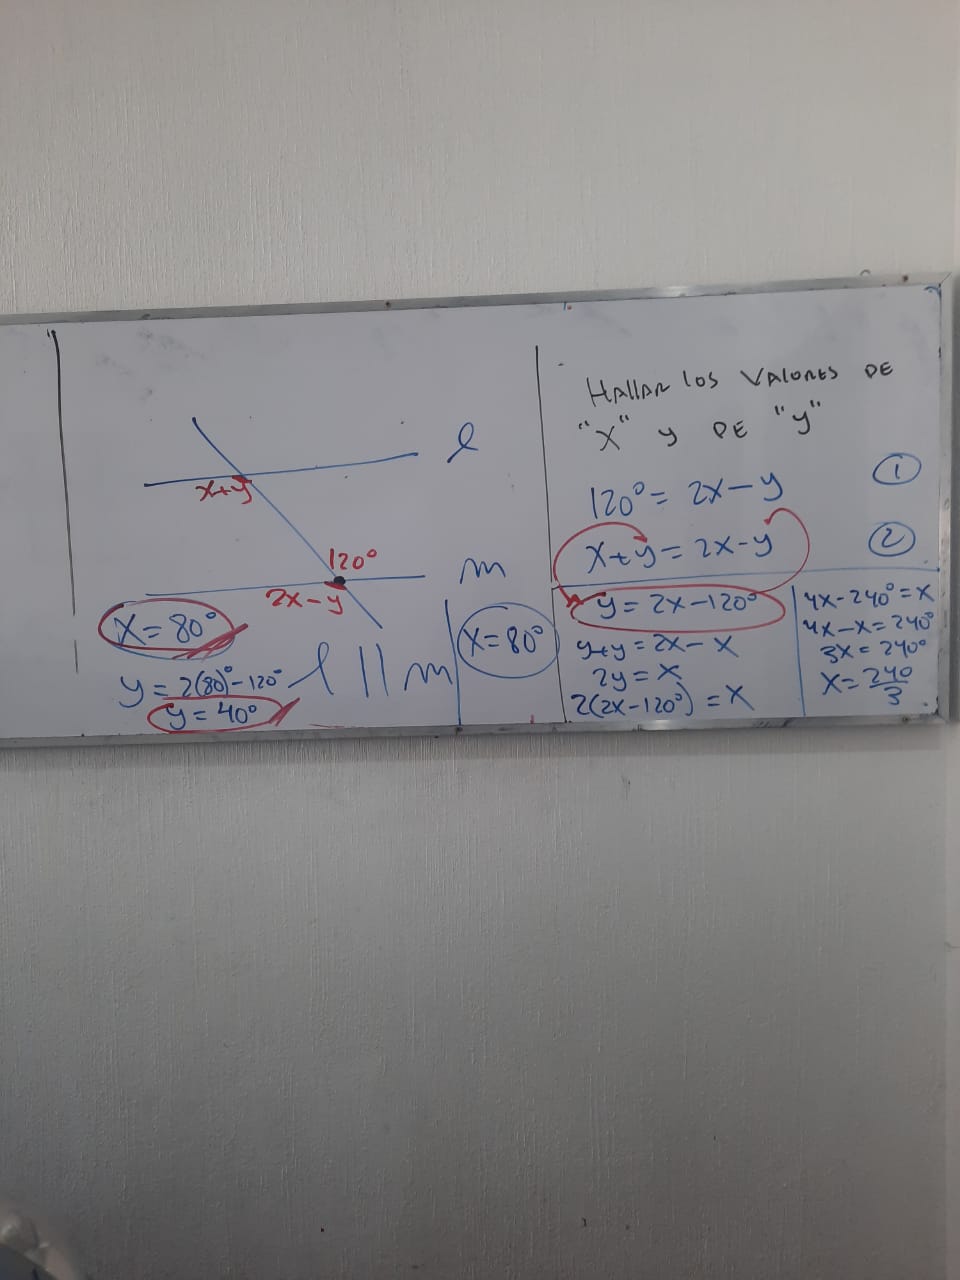 l
x+y
120°
m
2x-y
x=80°
y=2(80)°-120°
y=40°
l || m
x=80°
HALLAR los VALORES DE
"X" y DE "y"
120°=2x-y
①
x+y=2x-y
②
y=2x-120°
y+y=2x-x
2y=x
2(2x-120°)=x
4x-240°=x
4x-x=240°
3x=240°
x=240/3